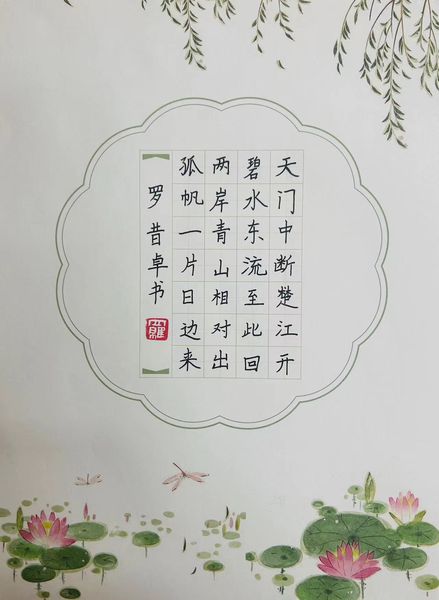 天门中断楚江开
碧水东流至此回
两岸青山相对出
狐帆一片日边来
罗昔卓书
羅